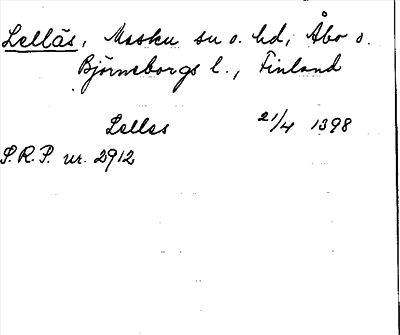 Lelläs, Masku sn o. hd, Åbo o.
Björneborgs l., Finland
Lelles 21/4 1398
S.R.P. nr. 2912